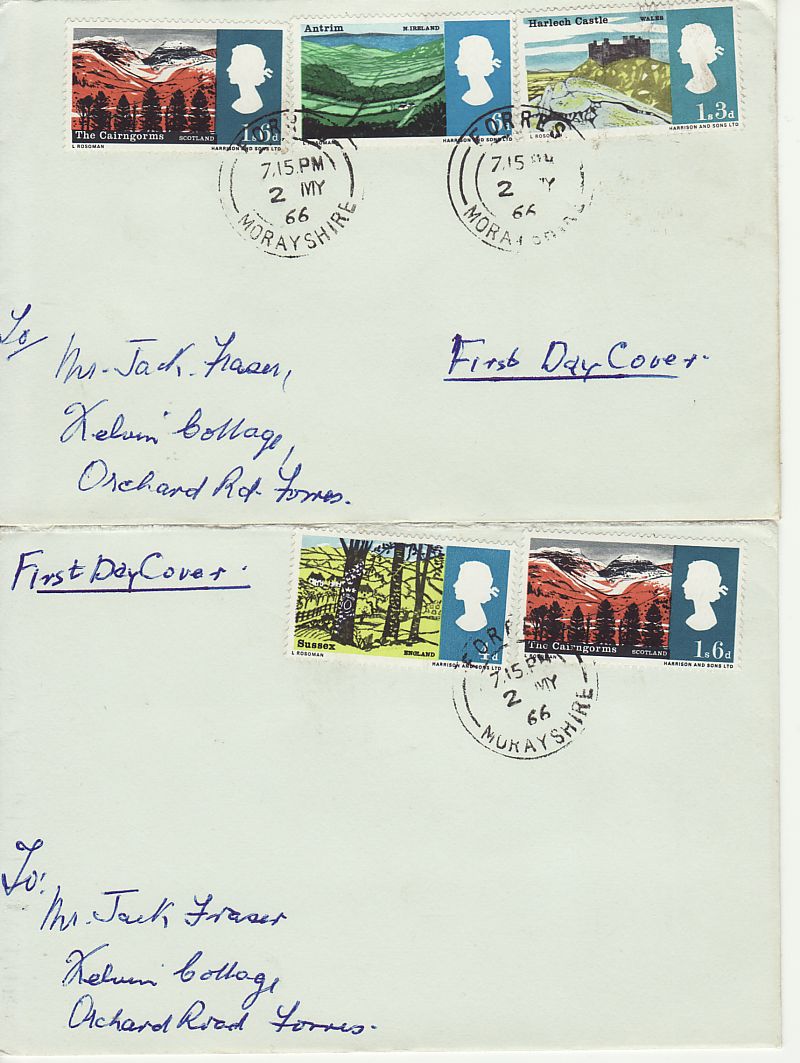 The Cairngorms SCOTLAND 1s6d
L ROSOMAN HARRISON AND SONS LTD
Antrim N.IRELAND
6d
L ROSOMAN HARRISON AND SONS LTD
Harlech Castle WALES
1s3d
L ROSOMAN HARRISON AND SONS LTD
FORRES
7.15 PM
2 MY
66
MORAYSHIRE
FORRES
7.15 PM
2 MY
66
MORAYSHIRE
To/
Mr. Jack Fraser,
Kelvin Cottage,
Orchard Rd. Forres.
First Day Cover.
First Day Cover.
Sussex ENGLAND 4d
L ROSOMAN HARRISON AND SONS LTD
The Cairngorms SCOTLAND 1s6d
L ROSOMAN HARRISON AND SONS LTD
FORRES
7.15 PM
2 MY
66
MORAYSHIRE
To:
Mr. Jack Fraser
Kelvin Cottage,
Orchard Road Forres.